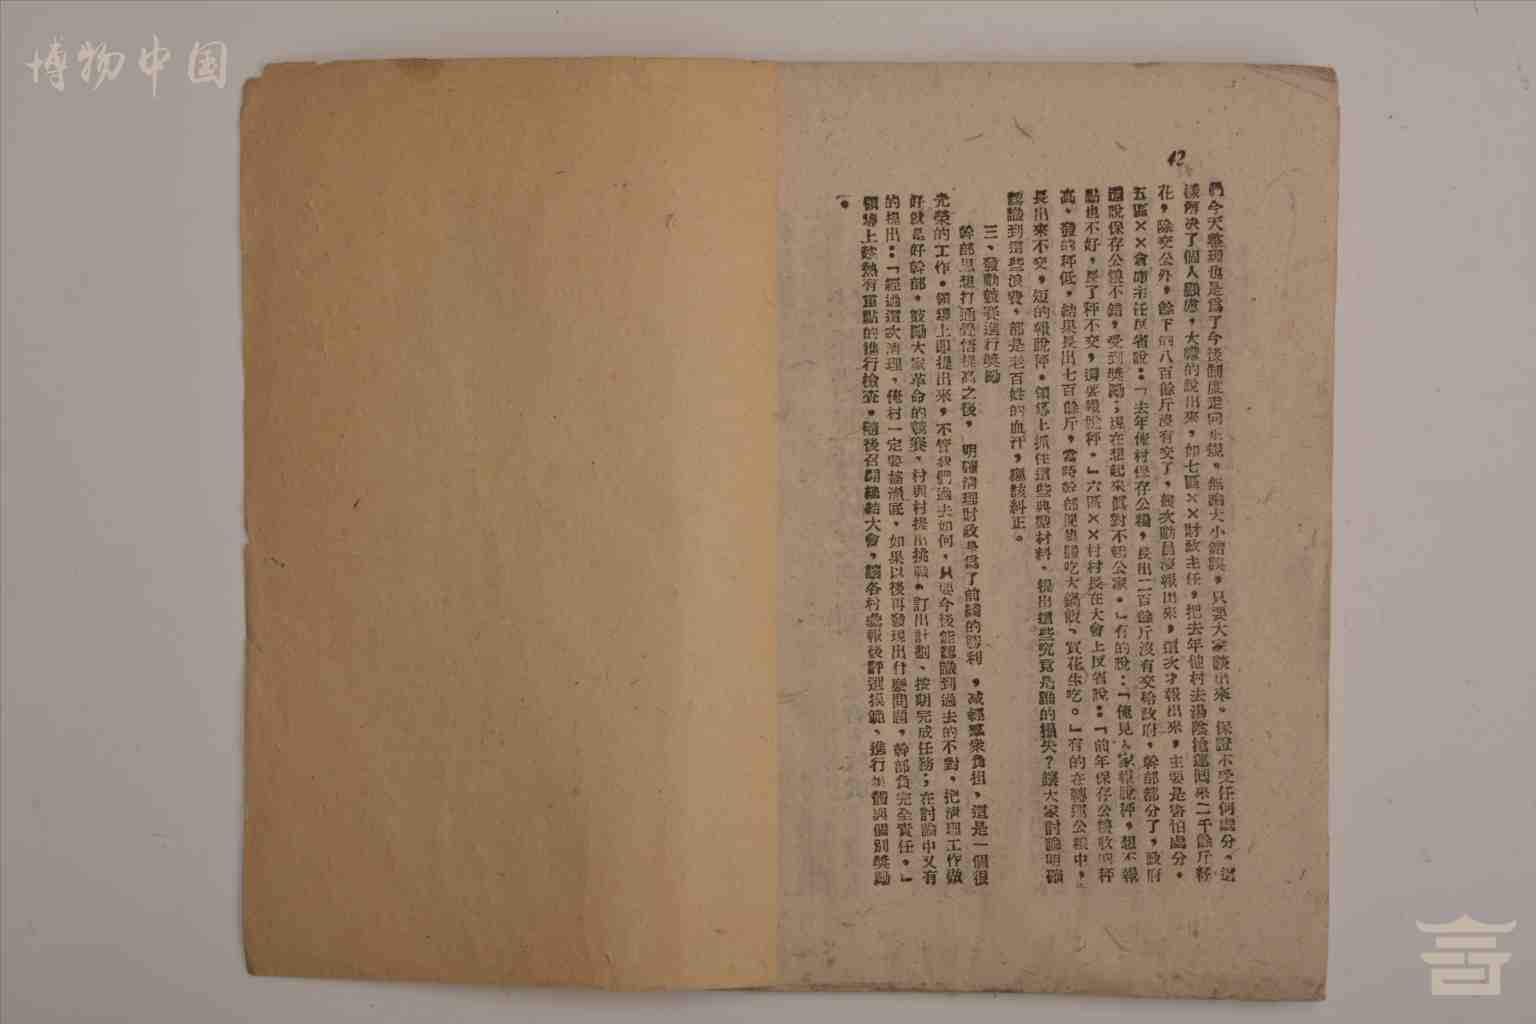 博物中国
12
們今天整理也是爲了今後制度走向正規。無論大小錯誤,只要大家談出來。保證不受任何處分。這
樣解決了個人顧慮,大膽的說出來,如七區××財政主任,把去年他村去湯陰搶運回來二千餘斤棉
花,除交公外,餘下的八百餘斤沒有交了,幾次動員沒報出來,這次才報出來,主要是害怕處分。
五區××倉庫主任反省說:「去年俺村保存公糧,長出二百餘斤沒有交給政府,幹部部分了,政府
還說保存公糧不錯,受到獎勵;現在想起來眞對不起公家。」有的說:「俺見人家報說秤,想不報
點也不好,長了秤不交,還要報說秤。」六區××村村長在大會上反省說:「前年保存公糧收的秤
高、發的秤低,結果長出七百餘斤,當時幹部便集體吃大鍋飯、買花生吃。」有的在轉運公糧中,
長出來不交,短的報說秤。領導上抓住這些典型材料,提出這些究竟是誰的損失?讓大家討論明確
認識到這些浪費,都是老百姓的血汗,應該糾正。
三、發動競賽進行獎勵
幹部思想打通覺悟提高之後,明確清理財政是爲了前綫的勝利,減輕羣衆負担,這是一個很
光榮的工作。領導上即提出來,不管我們過去如何,只要今後能認識到過去的不對,把清理工作做
好就是好幹部。鼓勵大家革命的競賽,村與村提出挑戰,訂出計劃、按期完成任務;在討論中又有
的提出:「經過這次清理,俺村一定要搞澈底,如果以後再發現出什麼問題,幹部負完全責任。」
領導上趁熱有重點的進行檢查。隨後召開總結大會,讓各村彙報後評選模範、進行集體與個別獎勵
。